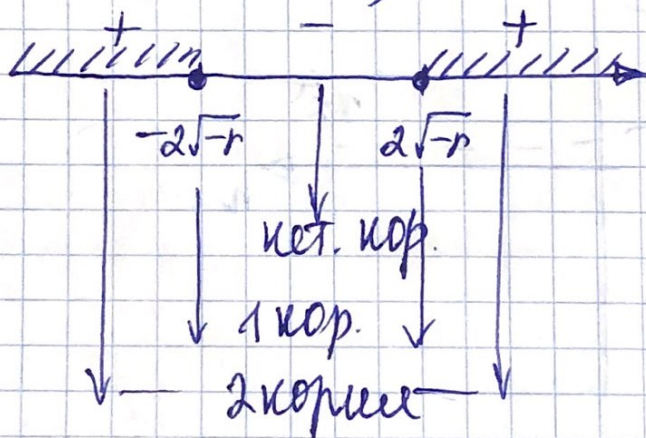 + − +
-2√-r 2√-r
нет. кор.
1 кор.
2 корня